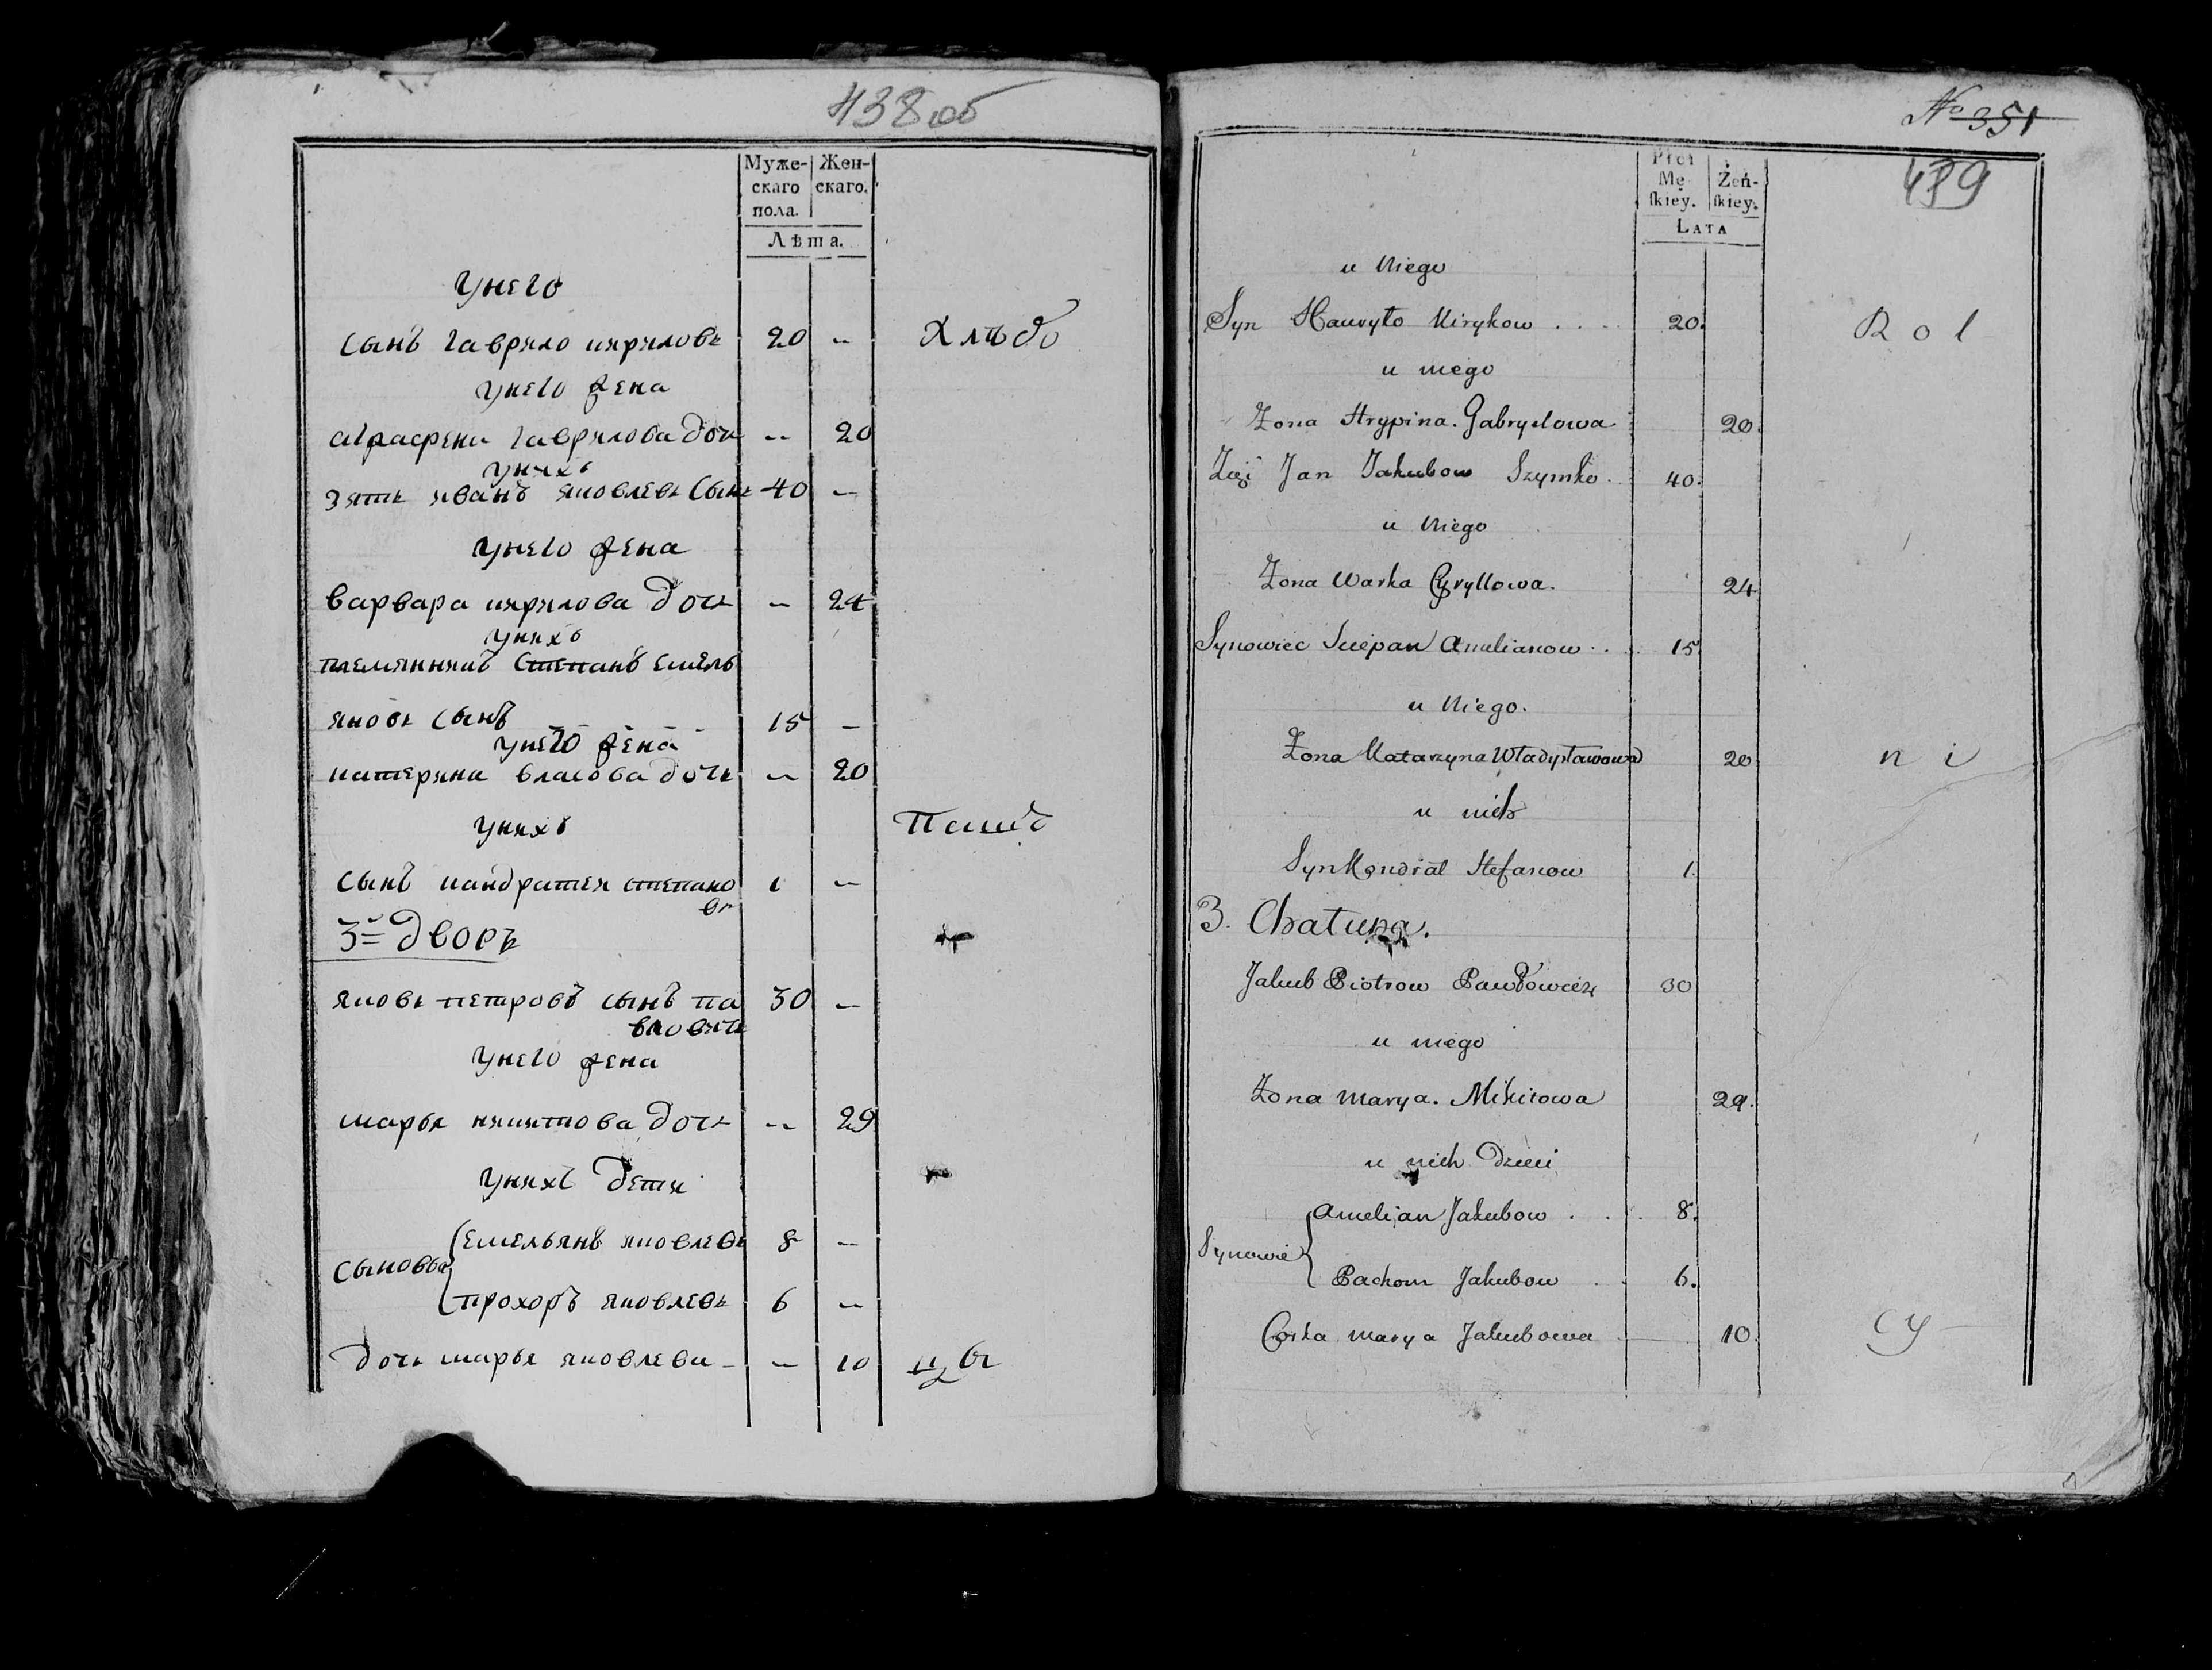 438 об
Муже- Жен-
скаго скаго.
пола.
Лѣта.
Унего
Сынъ Гаврило кириловъ 20 - Хлѣбо
унего жена
аграфена Гаврилова дочь - 20
унихъ
зять иванъ яковлевъ сынъ 40 -
унего жена
варвара кирилова дочь - 24
унихъ
племянникъ степанъ Емель
яновъ сынъ 15 -
унего жена
катерина власова дочь - 20
унихъ Паш
сынъ кандратей степано 1 -
въ
3й дворъ
яковъ петровъ сынъ па 30 -
вловичь
унего жена
марья никитова дочь - 29
унихъ дети
Сыновья
Емельянъ яковлевъ 8 -
прохоръ яковлевъ 6 -
дочь марья яковлева - - 10 цы
№ 351
439
Płci
Mę- Żeń-
ſkiey. ſkiey.
LATA
u Niego
Syn Hauryło Kirykow . . . . 20. R o l
u niego
Żona Hrypina. Gabryelowa 20.
Zięć Jan Jakubow Szymko. 40.
u Niego
Żona Warka Cyryllowa. 24
Synowiec Sciepan Amelianow . . . 15
u Niego.
Żona Katarzyna Władysławowa 20 n i
u nich
Syn Kondrat Stefanow 1.
3. Chatupa.
Jakub Piotrow Pawłowicz 30
u niego
Żona Marya. Mikitowa 29.
u nich Dzieci
Synowie
Amelian Jakubow . . . 8.
Pachom Jakubow . . 6.
Corka Marya Jakubowa 10. cy